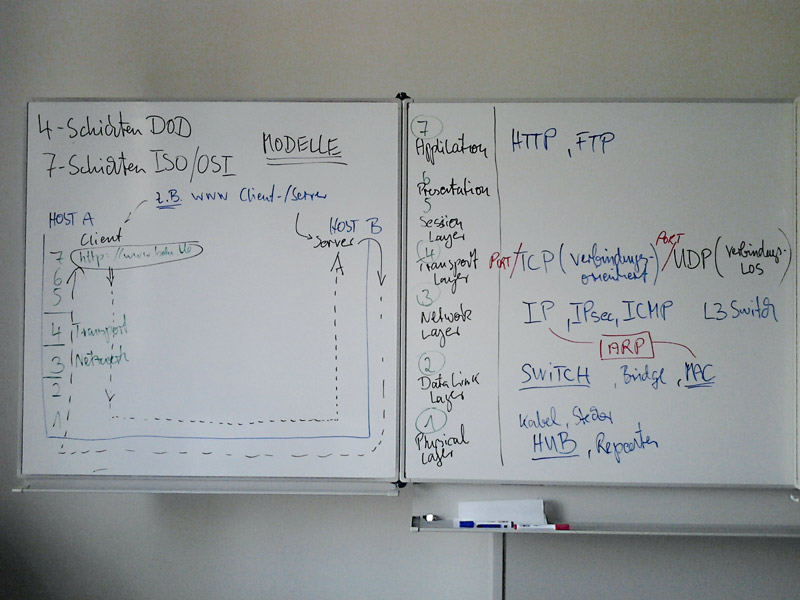 4-Schichten DOD
7-Schichten ISO/OSI
MODELLE
z.B. WWW Client-/Server
HOST A
HOST B
Client
Server
http://www
7
6
5
4 Transport
3 Netzwerk
2
1
7
Application
HTTP, FTP
6
Presentation
5
Session
Layer
4
Transport
Layer
PORT/TCP (verbindungs-
orientiert)
PORT/UDP (verbindungs-
LOS)
3
Network
Layer
IP, IPsec, ICMP L3 Switch
ARP
2
Data Link
Layer
SWITCH, Bridge, MAC
1
Physical
Layer
Kabel, Stecker
HUB, Repeater